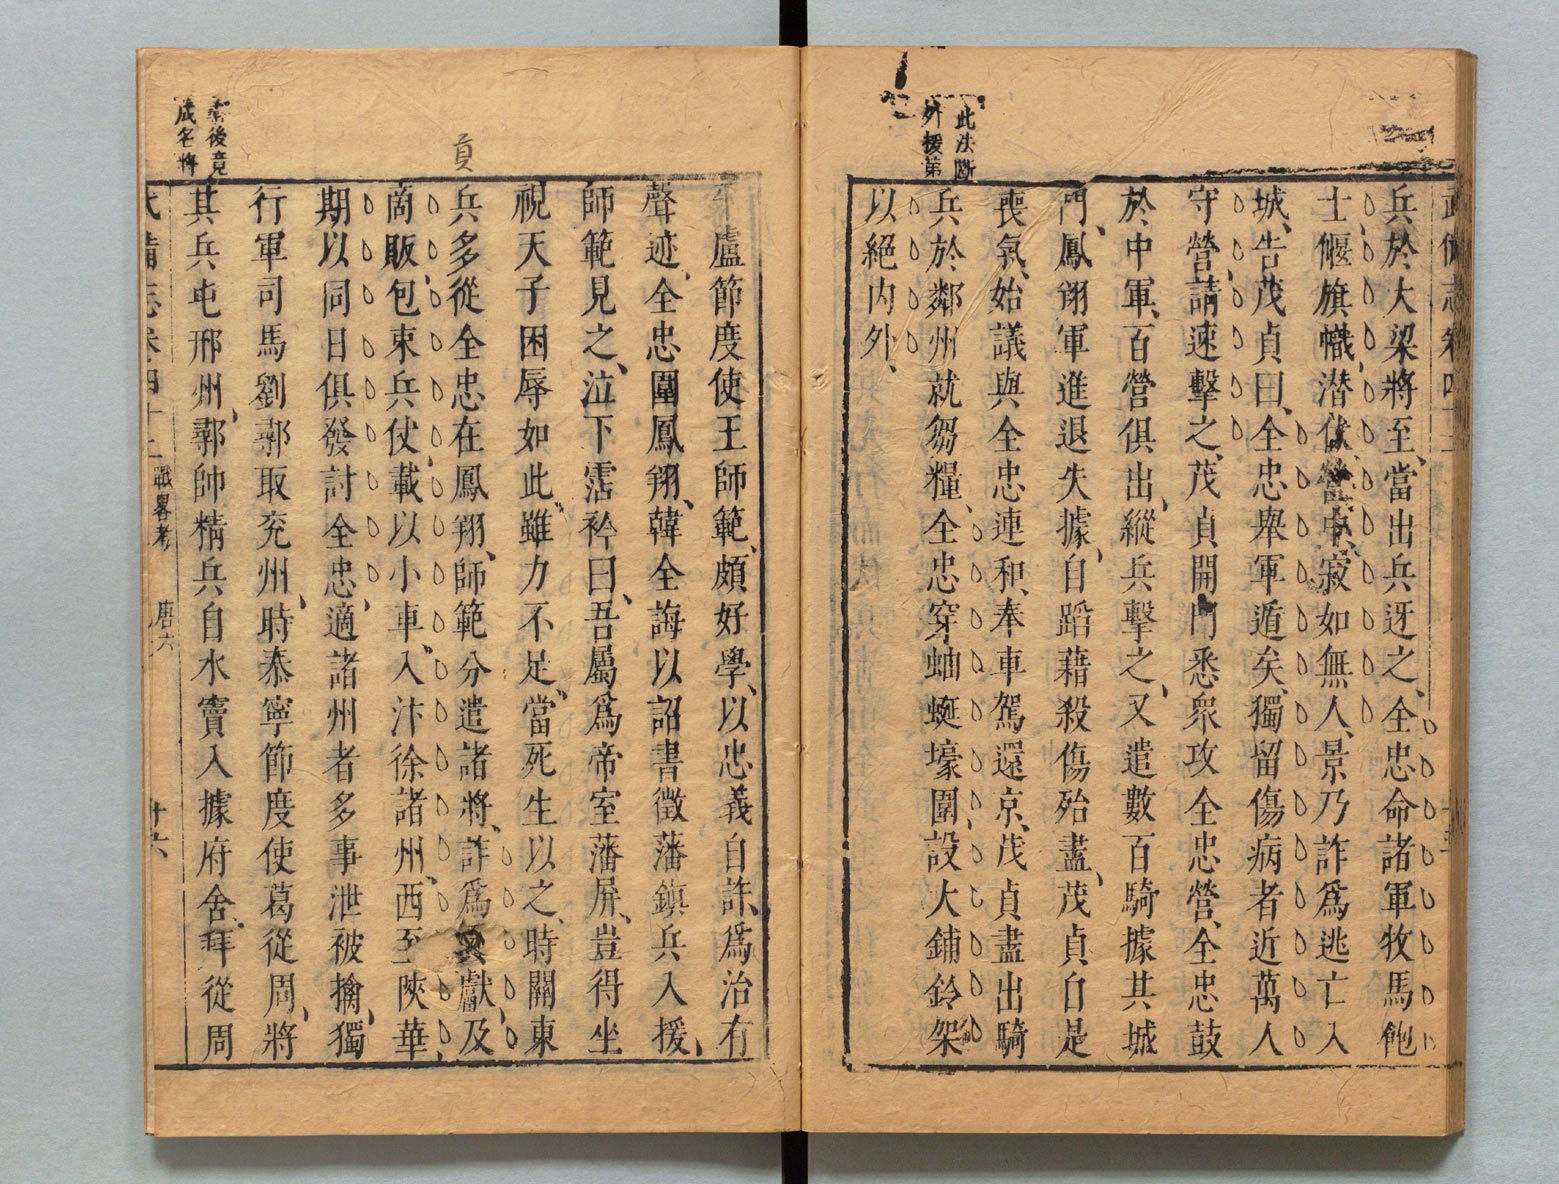 此法斷
外援第
武備志卷四十二
兵於大梁將至當出兵迓之全忠命諸軍牧馬飽
士偃旗幟潜伏營中寂如無人景乃詐爲逃亡入
城告茂貞曰全忠舉軍遁矣獨留傷病者近萬人
守營請速擊之茂貞開門悉衆攻全忠營全忠鼓
於中軍百營俱出縱兵擊之又遣數百騎據其城
門鳳翔軍進退失據自蹈藉殺傷殆盡茂貞自是
喪氣始議與全忠連和奉車駕還京茂貞盡出騎
兵於鄰州就芻糧全忠穿蚰蜒壕圍設大鋪鈴架
以絕内外
貢
後竟
成名將
平盧節度使王師範頗好學以忠義自許爲治有
聲迹全忠圍鳳翔韓全誨以詔書徵藩鎮兵入援
師範見之泣下霑衿曰吾屬爲帝室藩屏豈得坐
視天子困辱如此雖力不足當死生以之時關東
兵多從全忠在鳳翔師範分遣諸將詐爲貢獻及
商販包束兵仗載以小車入汴徐諸州西至陝華
期以同日俱發討全忠適諸州者多事泄被擒獨
行軍司馬劉鄩取兖州時泰寧節度使葛從周將
其兵屯邢州鄩帥精兵自水竇入據府舍拜從周
武備志卷四十二 戰畧考 唐六 十六